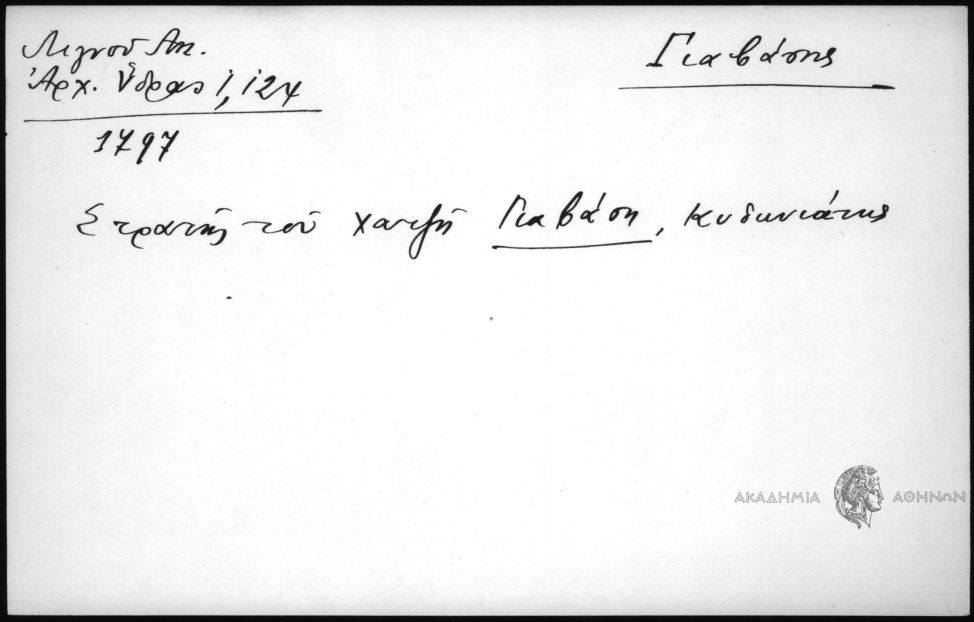 Λιγνοῦ Αν.
Γιαβάσης
Ἀρχ. Ὕδρας 1, 124
1797
Στρατής τοῦ χατζῆ Γιαβάση, Κυδωνιάτης
ΑΚΑΔΗΜΙΑ ΑΘΗΝΩΝ